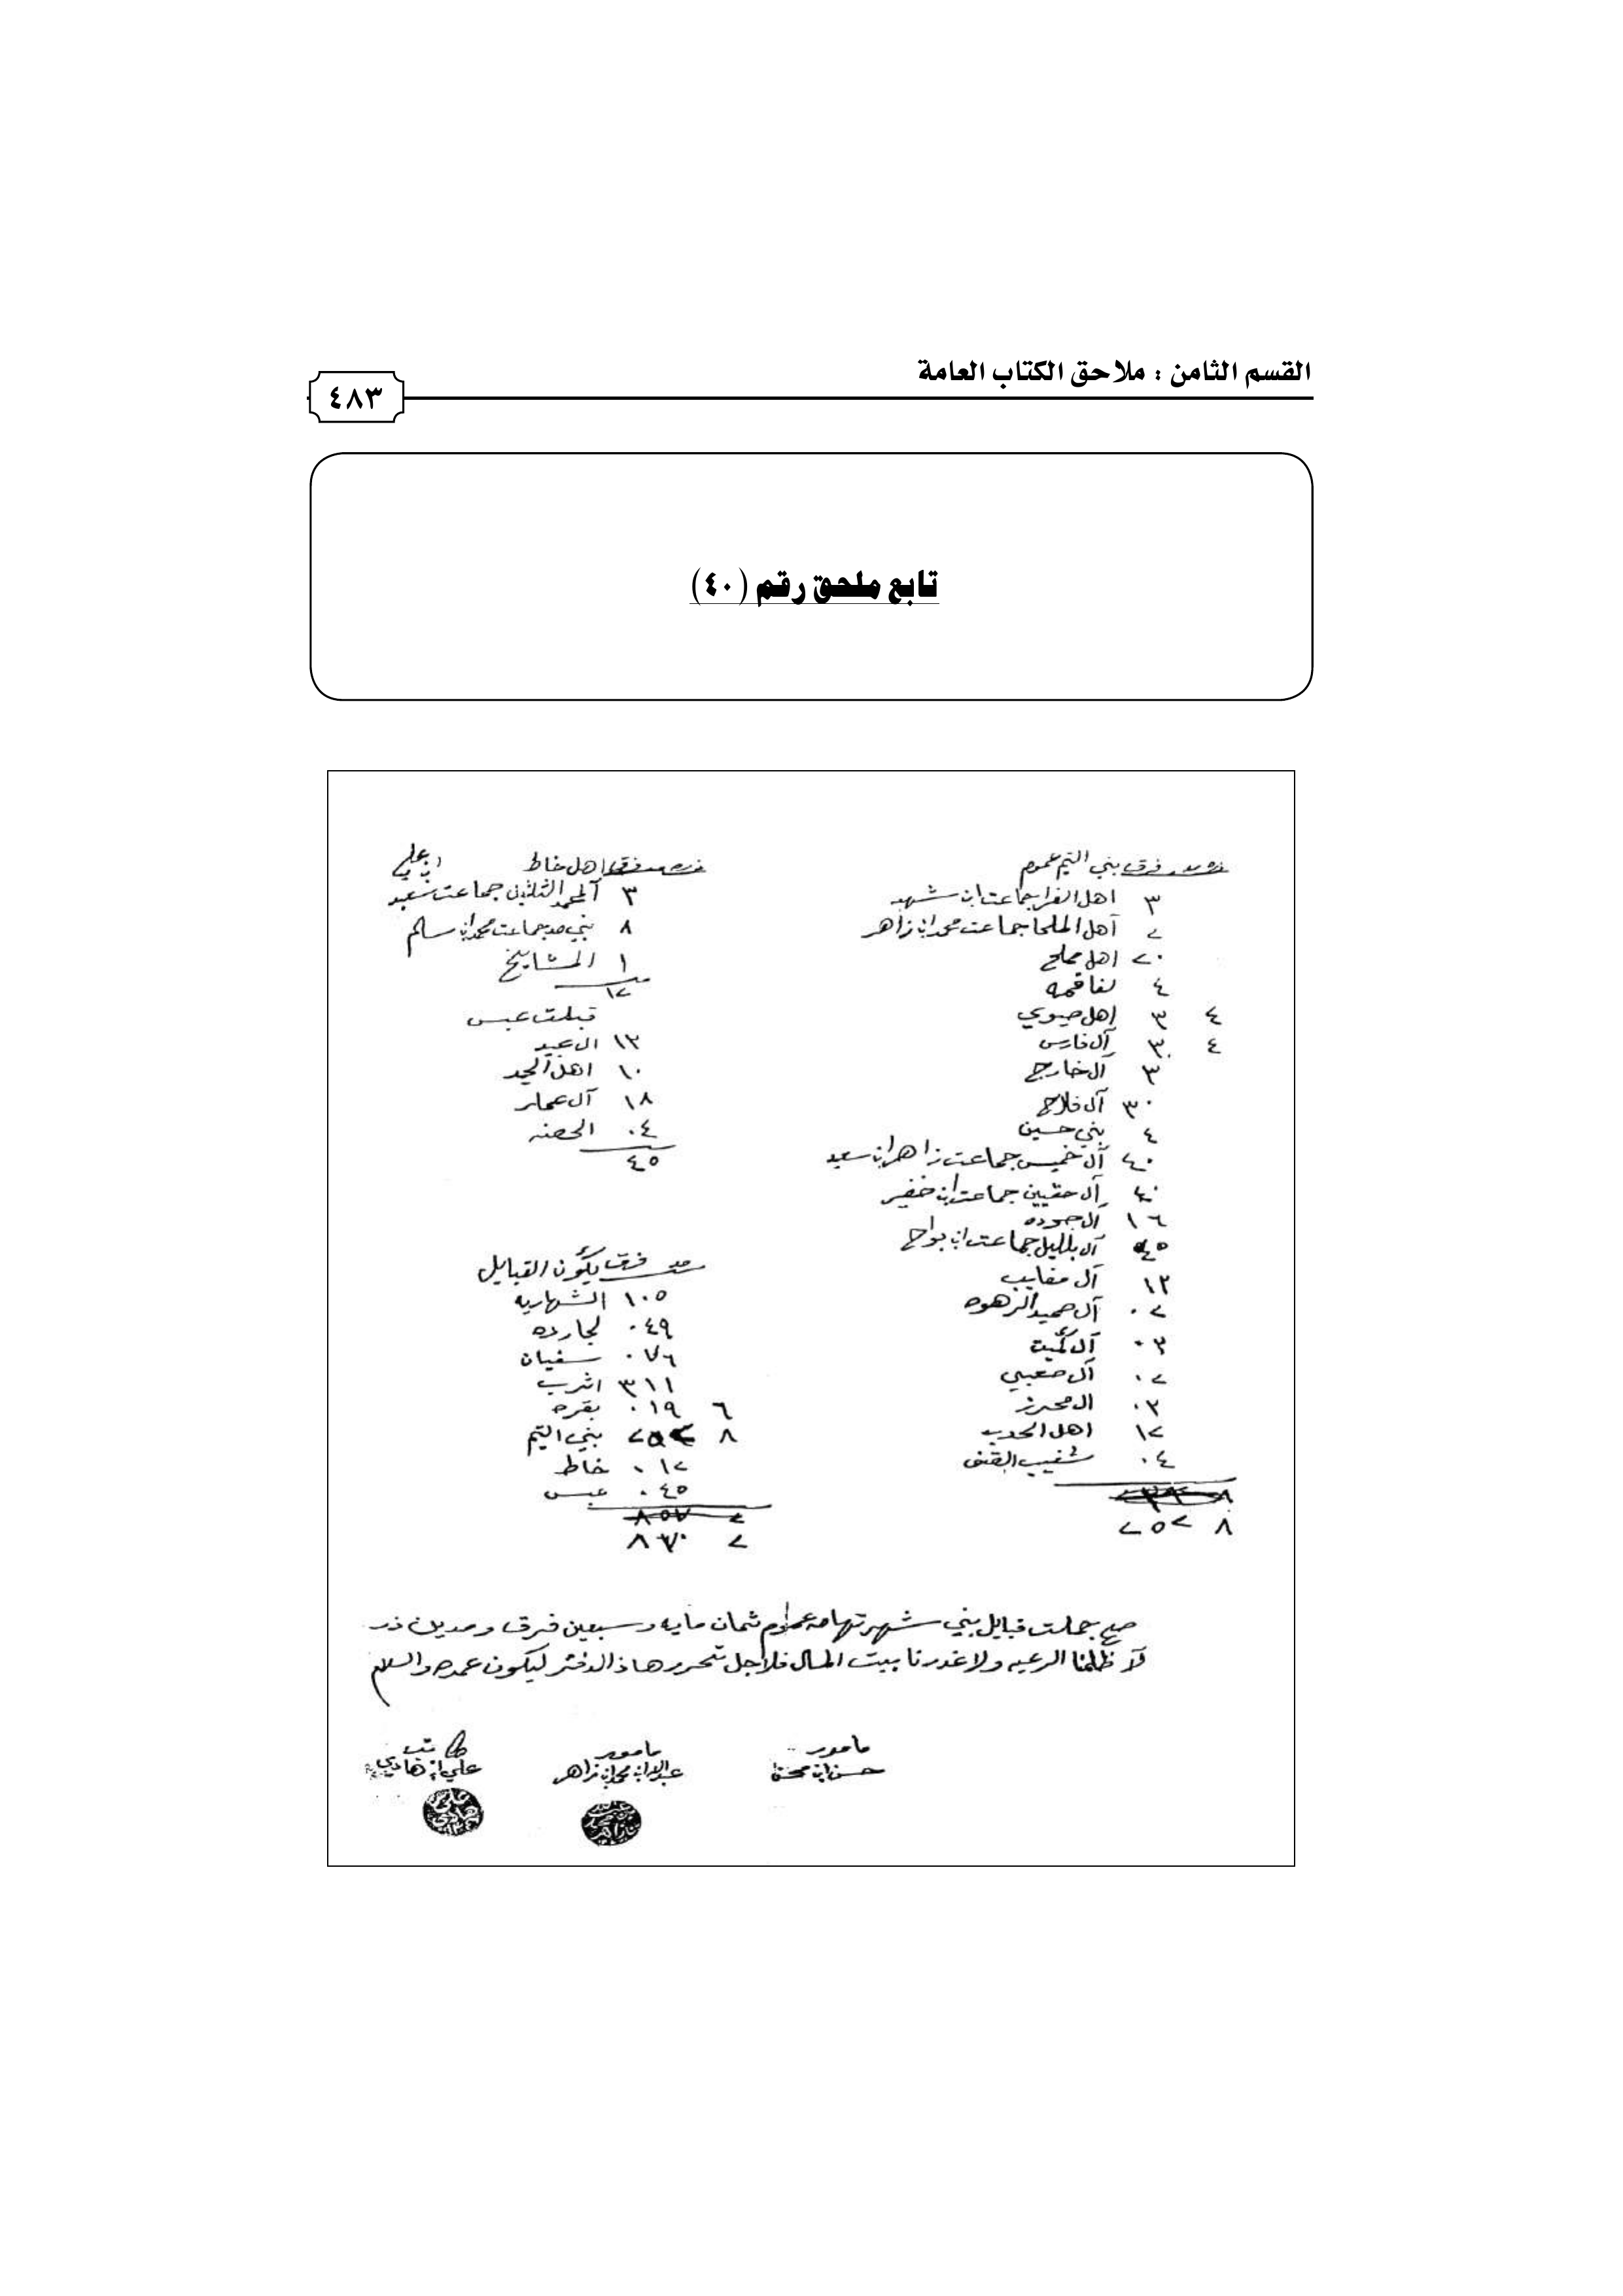 القسم الثامن : ملاحق الكتاب العامة
٤٨٣
تابع ملحق رقم (٤٠)
فرق بني التيم عموم
٣ اهل الفرا جماعت ابن شهد
٢ آهل الملحا جماعت محمد ابن زاهر
٢٠ اهل مملح
٤ لفاقمه
٤ ٣ اهل صيوي
٤ ٣٠ آل فارس
٣ آل خارج
٣٠ آل فلاح
٤ بني حسين
٤٠ آل خميس جماعت زاهر ابن سعيد
آل حقيين جماعت ابن خفير
١٦ آل جوده
٤٥ آل بالليل جماعت ابن بواح
١٢ آل مغايب
٠٢ آل حميد الزهوه
٠٣ آل كميت
٠٢ آل صعبي
٠٣ ال محرز
١٢ اهل الحدب
٠٤ شغيب القنف
٢٥٢ ٨
فرق اهل خاط
٣ جماعت سعيد ابن علي
٨ بني جماعت محمد ابن سالم
١ المشايخ
١٢
قبلت عبس
١٣ ال عيد
١٠ اهل الحد
١٨ آل عمار
٠٤ الحصنه
٤٥
فرق يكون القبايل
١٠٥ الشهاريه
٠٤٩ لجارده
٠٧٦ سفيان
٣١١ اثرب
٦ ٠١٩ بقره
٨ ٢٥٢ بني التيم
٠١٢ خاط
٠٤٥ عبس
٨٥٧ ٢
٨٧٠ ٢
صح جملت قبايل بني شهر تهامه عموم ثمان مايه وسبعين فرق ومدين ذر
لآ ظلمنا الرعيه ولا غدرنا بيت المال فلاجل تحرر هاذا الدفتر ليكون عمده والسلام
مامور
حسن ابن
مامور
عبدالله ابن محمد ابن زاهر
كاتب
علي ابن هادي